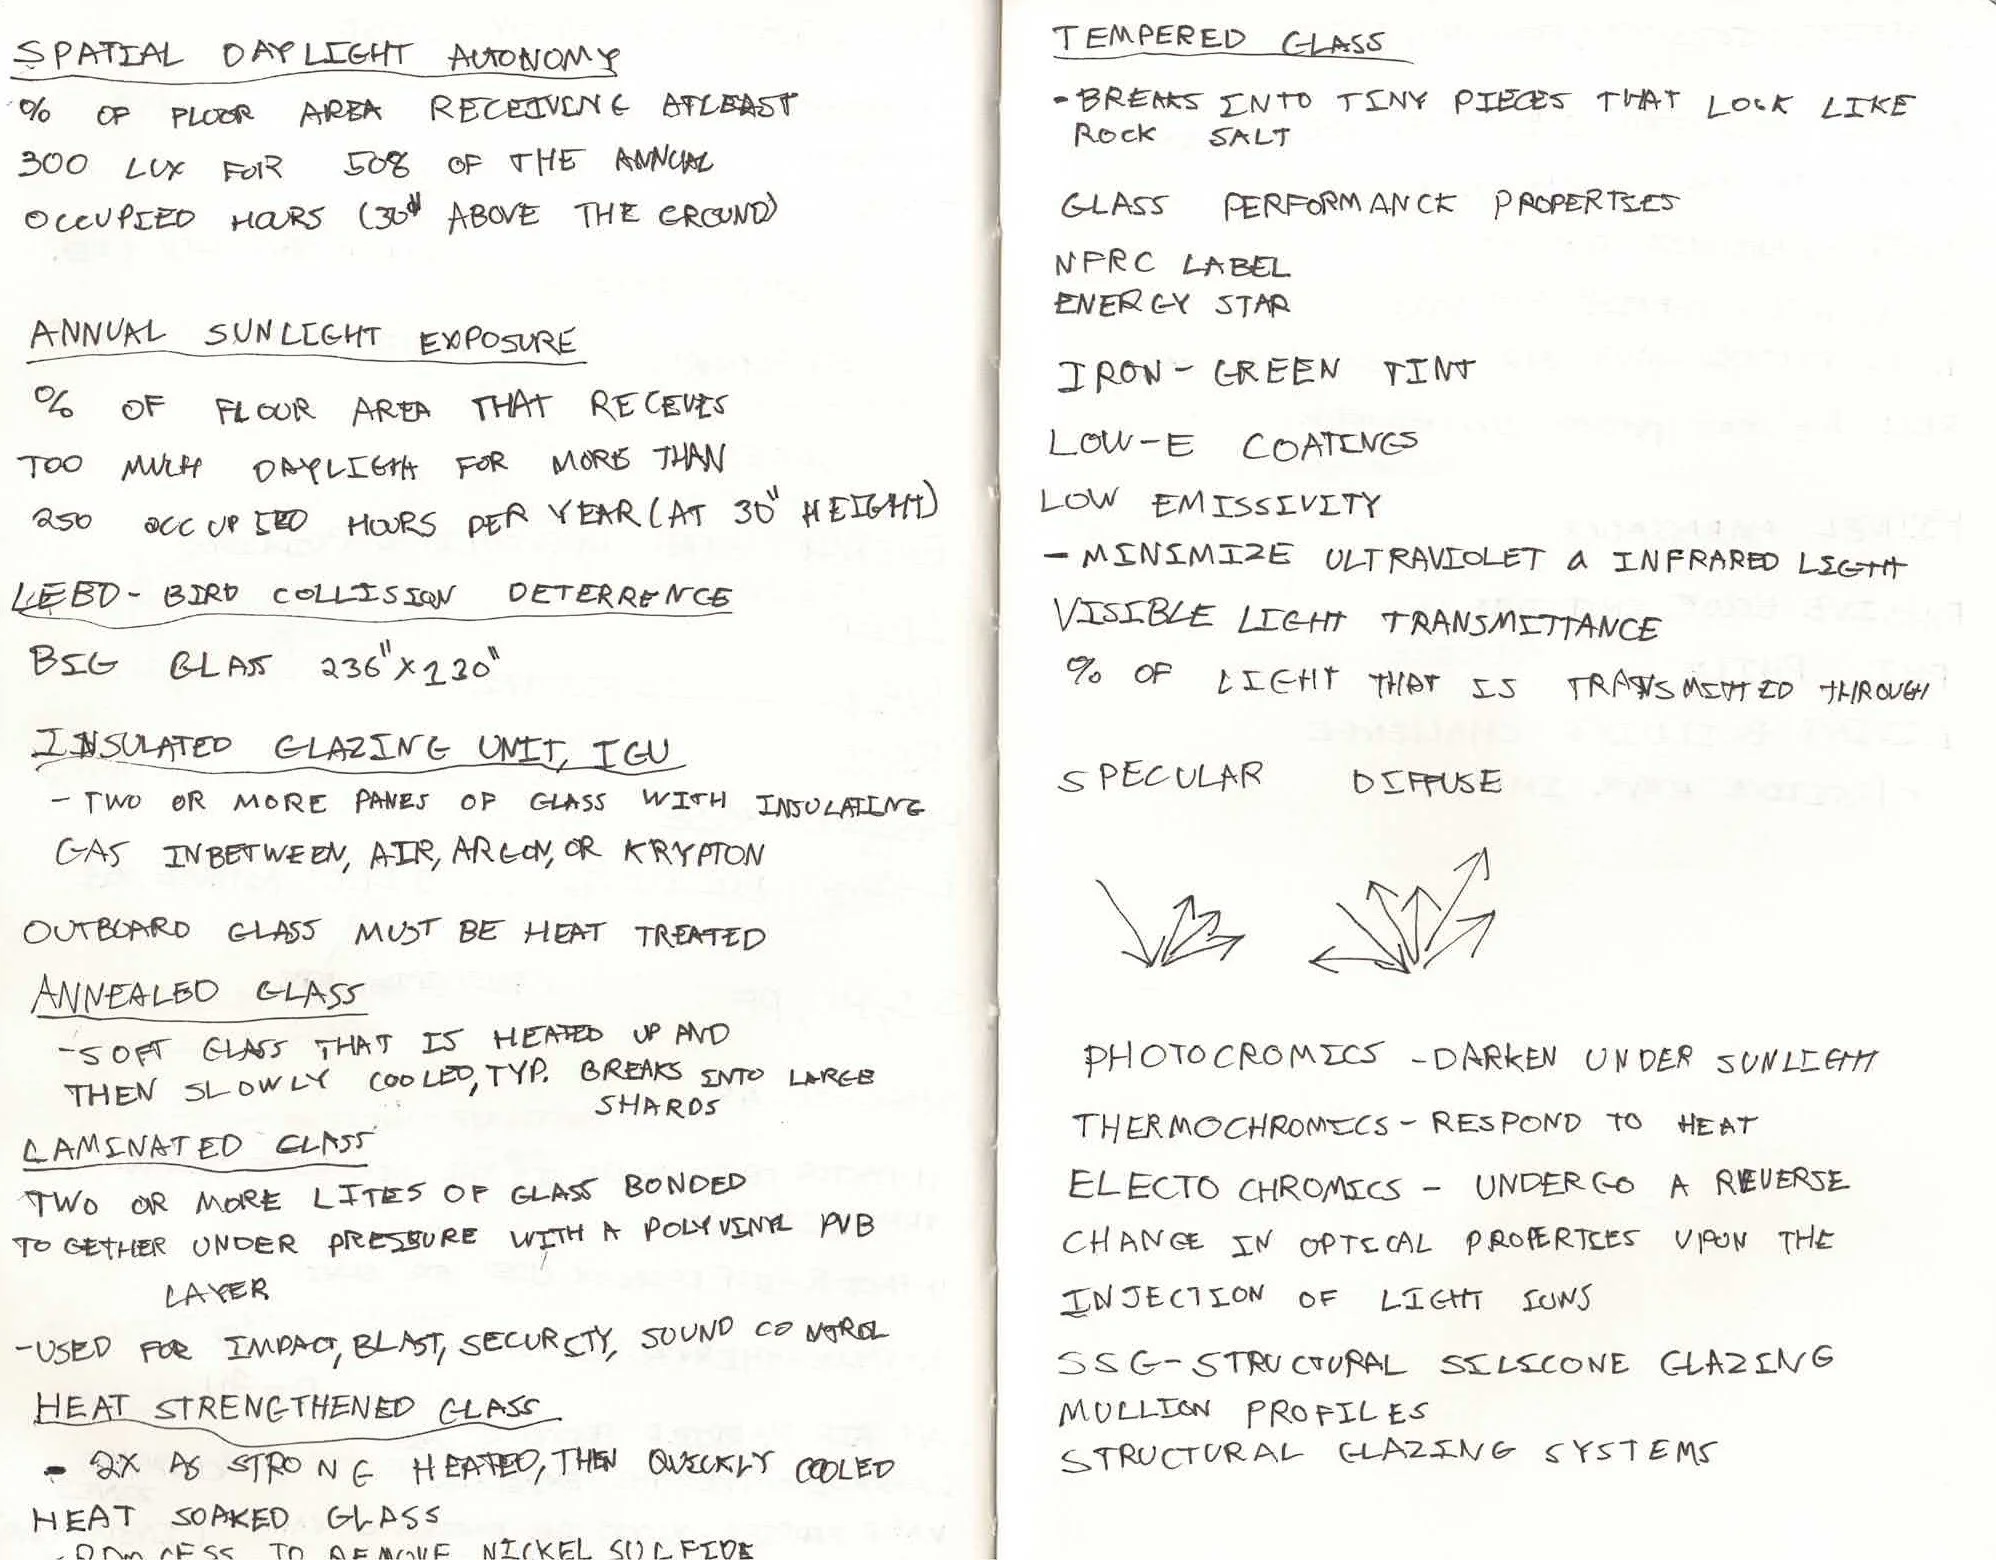 SPATIAL DAYLIGHT AUTONOMY
% OF FLOOR AREA RECEIVING ATLEAST
300 LUX FOR 50% OF THE ANNUAL
OCCUPIED HOURS (30" ABOVE THE GROUND)
ANNUAL SUNLIGHT EXPOSURE
% OF FLOUR AREA THAT RECEVES
TOO MUCH DAYLIGTH FOR MORE THAN
250 OCCUPIED HOURS PER YEAR (AT 30" HEIGHT)
LEED - BIRD COLLISION DETERRENCE
BIG GLASS 236" X 130"
INSULATED GLAZING UNIT, IGU
- TWO OR MORE PANES OF GLASS WITH INSULATING
GAS INBETWEEN, AIR, ARGON, OR KRYPTON
OUTBOARD GLASS MUST BE HEAT TREATED
ANNEALED GLASS
- SOFT GLASS THAT IS HEATED UP AND
THEN SLOWLY COOLED, TYP. BREAKS INTO LARGE
SHARDS
LAMINATED GLASS
TWO OR MORE LITES OF GLASS BONDED
TOGETHER UNDER PRESSURE WITH A POLYVINYL PVB
LAYER
- USED FOR IMPACT, BLAST, SECURITY, SOUND CONTROL
HEAT STRENGTHENED GLASS
- 2X AS STRONG HEATED, THEN QUICKLY COOLED
HEAT SOAKED GLASS
- PROCESS TO REMOVE NICKEL SULFIDE
TEMPERED GLASS
- BREAKS INTO TINY PIECES THAT LOOK LIKE
ROCK SALT
GLASS PERFORMANCE PROPERTIES
NFRC LABEL
ENERGY STAR
IRON - GREEN TINT
LOW-E COATINGS
LOW EMISSIVITY
- MINIMIZE ULTRAVIOLET & INFRARED LIGHT
VISIBLE LIGHT TRANSMITTANCE
% OF LIGHT THAT IS TRANSMITTED THROUGH
SPECULAR DIFFUSE
PHOTOCROMICS - DARKEN UNDER SUNLIGHT
THERMOCHROMICS - RESPOND TO HEAT
ELECTO CHROMICS - UNDERGO A REVERSE
CHANGE IN OPTICAL PROPERTIES UPON THE
INJECTION OF LIGHT IONS
SSG - STRUCTURAL SILICONE GLAZING
MULLION PROFILES
STRUCTURAL GLAZING SYSTEMS